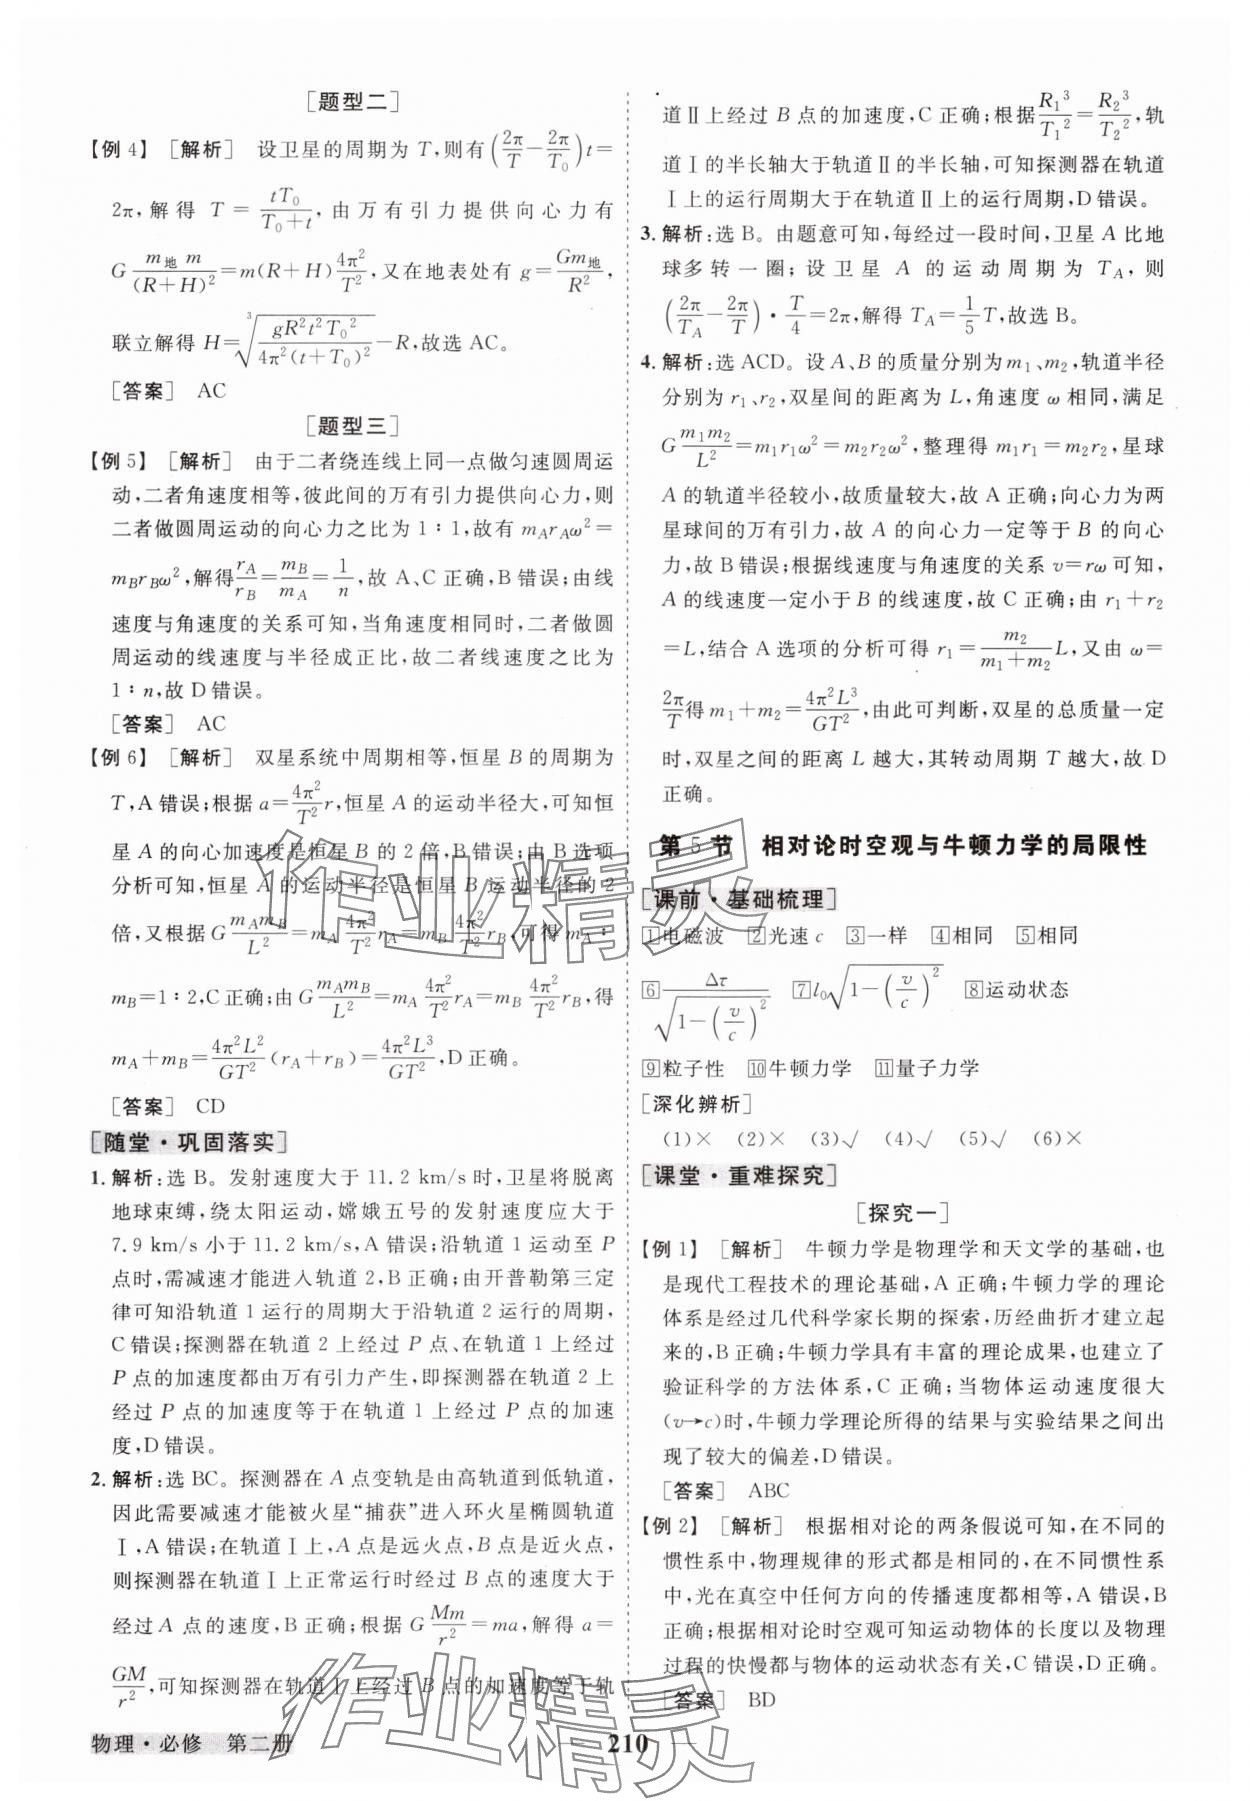 [题型二]
【例4】 [解析] 设卫星的周期为 T,则有(2π/T−2π/T₀)t=
2π,解得 T=tT₀/(T₀+t),由万有引力提供向心力有
G m地 m/(R+H)²=m(R+H)4π²/T²,又在地表处有 g=Gm地/R²,
联立解得 H=∛(gR²t²T₀²/4π²(t+T₀)²)−R,故选 AC。
[答案] AC
[题型三]
【例5】 [解析] 由于二者绕连线上同一点做匀速圆周运
动,二者角速度相等,彼此间的万有引力提供向心力,则
二者做圆周运动的向心力之比为 1∶1,故有 m_A r_A ω²=
m_B r_B ω²,解得r_A/r_B=m_B/m_A=1/n,故 A、C 正确,B 错误;由线
速度与角速度的关系可知,当角速度相同时,二者做圆
周运动的线速度与半径成正比,故二者线速度之比为
1∶n,故 D 错误。
[答案] AC
【例6】 [解析] 双星系统中周期相等,恒星 B 的周期为
T,A 错误;根据 a=4π²/T² r,恒星 A 的运动半径大,可知恒
星 A 的向心加速度是恒星 B 的 2 倍,B 错误;由 B 选项
分析可知,恒星 A 的运动半径是恒星 B 的运动半径的 2
倍,又根据 G m_A m_B/L²=m_A 4π²/T² r_A=m_B 4π²/T² r_B,可得 m_A∶
m_B=1∶2,C 正确;由 G m_A m_B/L²=m_A 4π²/T² r_A=m_B 4π²/T² r_B,得
m_A+m_B=4π²L²/GT²(r_A+r_B)=4π²L³/GT²,D 正确。
[答案] CD
[随堂·巩固落实]
1.解析:选 B。发射速度大于 11.2 km/s 时,卫星将脱离
地球束缚,绕太阳运动,嫦娥五号的发射速度应大于
7.9 km/s 小于 11.2 km/s,A 错误;沿轨道 1 运动至 P
点时,需减速才能进入轨道 2,B 正确;由开普勒第三定
律可知沿轨道 1 运行的周期大于沿轨道 2 运行的周期,
C 错误;探测器在轨道 2 上经过 P 点、在轨道 1 上经过
P 点的加速度都由万有引力产生,即探测器在轨道 2 上
经过 P 点的加速度等于在轨道 1 上经过 P 点的加速
度,D 错误。
2.解析:选 BC。探测器在 A 点变轨是由高轨道到低轨道,
因此需要减速才能被火星“捕获”进入环火星椭圆轨道
Ⅰ,A 错误;在轨道Ⅰ上,A 点是远火点,B 点是近火点,
则探测器在轨道Ⅰ上正常运行时经过 B 点的速度大于
经过 A 点的速度,B 正确;根据 G Mm/r²=ma,解得 a=
GM/r²,可知探测器在轨道Ⅰ上经过 B 点的加速度等于轨
物理·必修 第二册
道Ⅱ上经过 B 点的加速度,C 正确;根据R₁³/T₁²=R₂³/T₂²,轨
道Ⅰ的半长轴大于轨道Ⅱ的半长轴,可知探测器在轨道
Ⅰ上的运行周期大于在轨道Ⅱ上的运行周期,D 错误。
3.解析:选 B。由题意可知,每经过一段时间,卫星 A 比地
球多转一圈;设卫星 A 的运动周期为 T_A,则
(2π/T_A−2π/T)·T/4=2π,解得 T_A=1/5 T,故选 B。
4.解析:选 ACD。设 A、B 的质量分别为 m₁、m₂,轨道半径
分别为 r₁、r₂,双星间的距离为 L,角速度 ω 相同,满足
G m₁m₂/L²=m₁r₁ω²=m₂r₂ω²,整理得 m₁r₁=m₂r₂,星球
A 的轨道半径较小,故质量较大,故 A 正确;向心力为两
星球间的万有引力,故 A 的向心力一定等于 B 的向心
力,故 B 错误;根据线速度与角速度的关系 v=rω 可知,
A 的线速度一定小于 B 的线速度,故 C 正确;由 r₁+r₂
=L,结合 A 选项的分析可得 r₁=m₂/(m₁+m₂) L,又由 ω=
2π/T得 m₁+m₂=4π²L³/GT²,由此可判断,双星的总质量一定
时,双星之间的距离 L 越大,其转动周期 T 越大,故 D
正确。
第 5 节 相对论时空观与牛顿力学的局限性
[课前·基础梳理]
1电磁波 2光速 c 3一样 4相同 5相同
6 Δτ/√(1−(v/c)²) 7 l₀√(1−(v/c)²) 8运动状态
9粒子性 10牛顿力学 11量子力学
[深化辨析]
(1)× (2)× (3)√ (4)√ (5)√ (6)×
[课堂·重难探究]
[探究一]
【例1】 [解析] 牛顿力学是物理学和天文学的基础,也
是现代工程技术的理论基础,A 正确;牛顿力学的理论
体系是经过几代科学家长期的探索,历经曲折才建立起
来的,B 正确;牛顿力学具有丰富的理论成果,也建立了
验证科学的方法体系,C 正确;当物体运动速度很大
(v→c)时,牛顿力学理论所得的结果与实验结果之间出
现了较大的偏差,D 错误。
[答案] ABC
【例2】 [解析] 根据相对论的两条假说可知,在不同的
惯性系中,物理规律的形式都是相同的,在不同惯性系
中,光在真空中任何方向的传播速度都相等,A 错误,B
正确;根据相对论时空观可知运动物体的长度以及物理
过程的快慢都与物体的运动状态有关,C 错误,D 正确。
[答案] BD
210
作业精灵
作业精灵